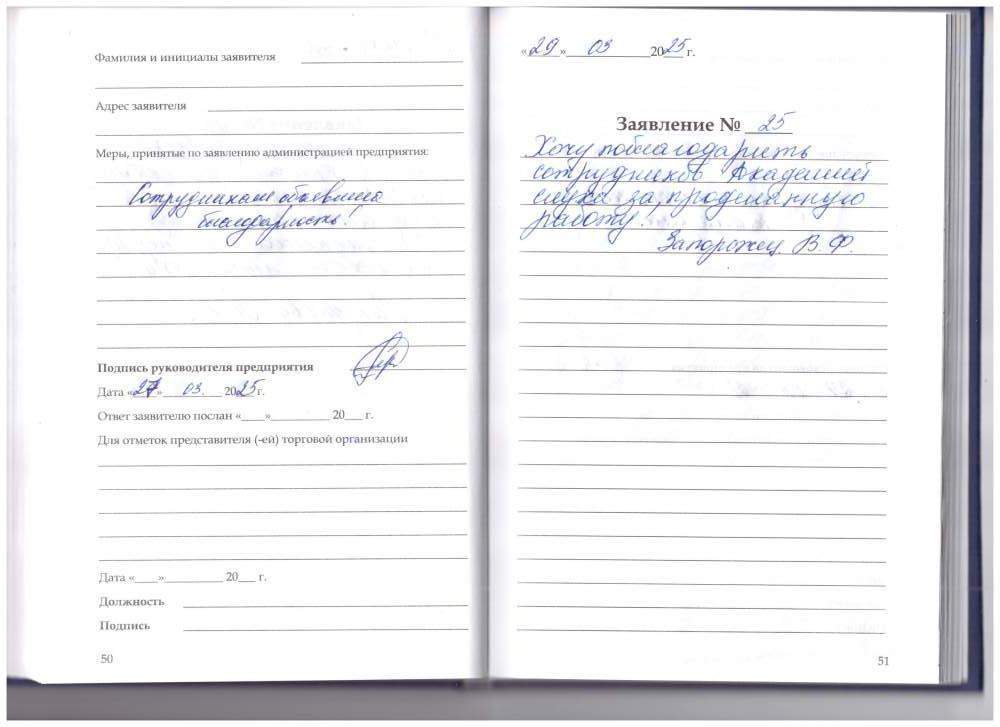 Фамилия и инициалы заявителя
Адрес заявителя
Меры, принятые по заявлению администрацией предприятия:
Сотрудникам объявлена
благодарность!
Подпись руководителя предприятия
Дата «27» 03. 2025г.
Ответ заявителю послан «___»_________ 20___ г.
Для отметок представителя (-ей) торговой организации
Дата «___»_________ 20___ г.
Должность
Подпись
50
«29» 03 2025 г.
Заявление № 25
Хочу поблагодарить
сотрудников Академии
слуха за проделанную
работу!
Запорожец В. Ф.
51